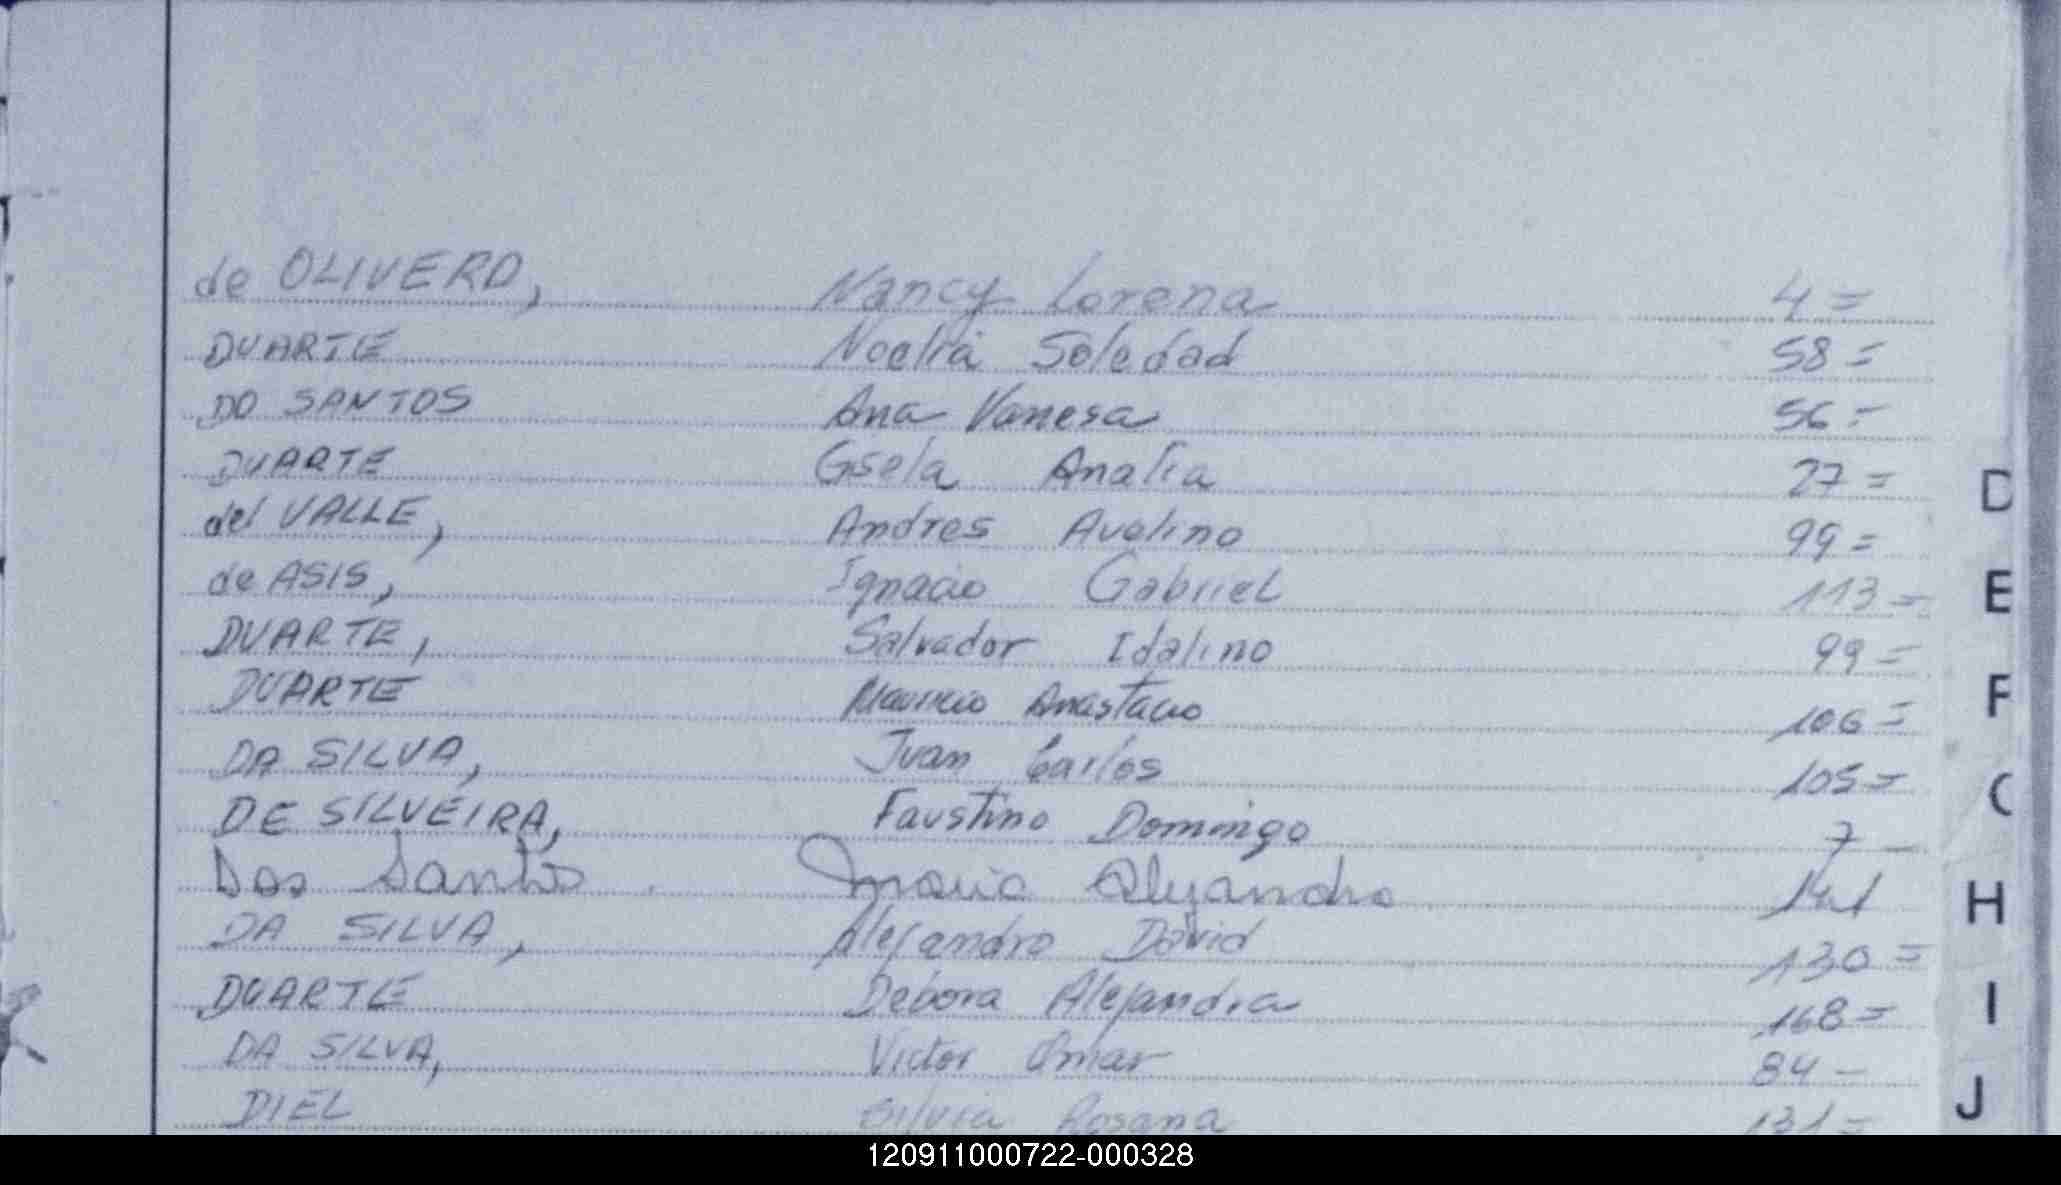 de OLIVERO, Nancy Lorena 4=
DUARTE Noelia Soledad 58=
DO SANTOS Ana Vanesa 56=
DUARTE Gisela Analia 27=
del VALLE, Andres Avelino 99=
de ASIS, Ignacio Gabriel 113=
DUARTE, Salvador Idalino 99=
DUARTE Mauricio Anastacio 106=
DA SILVA, Juan Carlos 105=
DE SILVEIRA, Faustino Domingo 7-
Dos Santos Maria Alejandra 141
DA SILVA, Alejandro David 130=
DUARTE Debora Alejandra 168=
DA SILVA, Victor Omar 84-
DIEL Silvia Rosana 131=
D
E
F
H
I
J
120911000722-000328